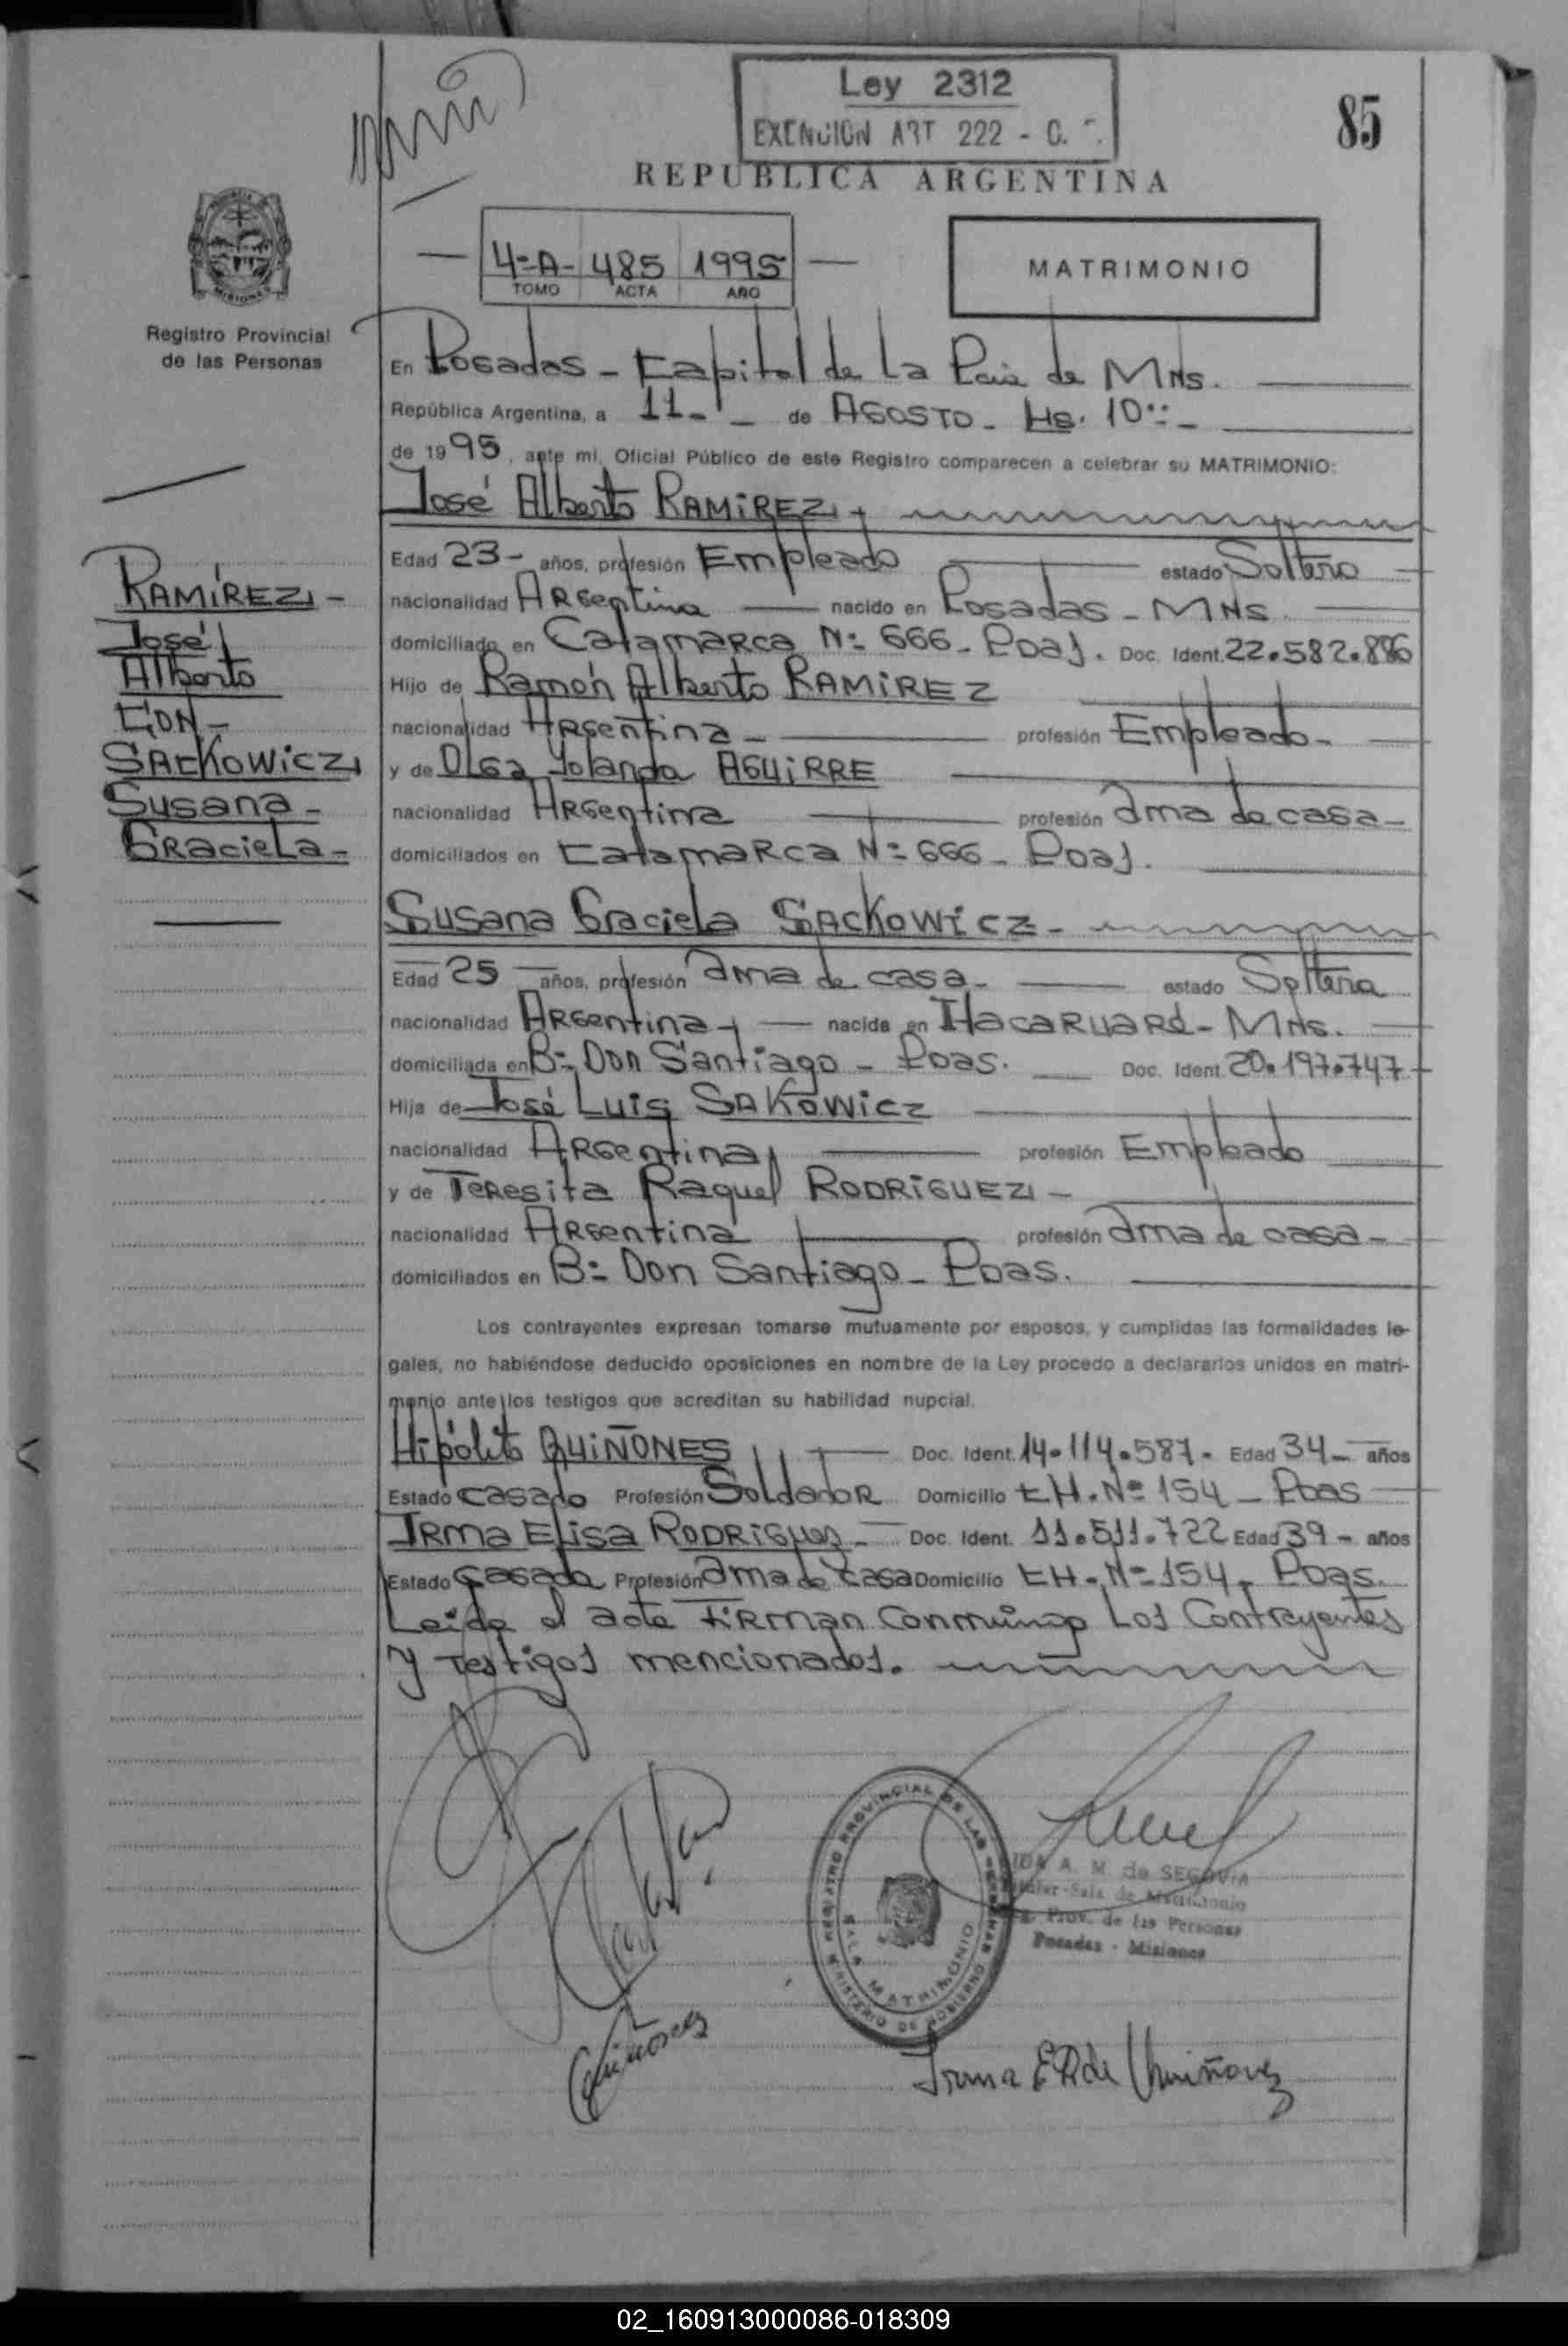 Ley 2312
EXENCION ART 222 - C.
85
REPUBLICA ARGENTINA
4º-A- 485 1995
TOMO ACTA AÑO
MATRIMONIO
MISIONES
Registro Provincial
de las Personas
En Posadas - Capital de La Pcia de MNS.
República Argentina, a 11- de AGOSTO - Hs. 10::-
de 1995, ante mí, Oficial Público de este Registro comparecen a celebrar su MATRIMONIO:
José Alberto RAMIREZ
Edad 23- años, profesión Empleado estado Soltero
nacionalidad Argentina nacido en Posadas - MNS.
domiciliado en Catamarca Nº 666- Pdas. Doc. Ident. 22.582.886
Hijo de Ramón Alberto RAMIREZ
nacionalidad Argentina - profesión Empleado -
y de Olga Yolanda AGUIRRE
nacionalidad Argentina profesión ama de casa -
domiciliados en Catamarca Nº 666 - Pdas.
RAMIREZ -
José
Alberto
CON -
SACKOWICZ
Susana -
Graciela -
Susana Graciela SACKOWICZ -
Edad 25 años, profesión ama de casa - estado Soltera
nacionalidad Argentina - nacida en Itacaruaré - MNS.
domiciliada en Bº Don Santiago - Pdas. Doc. Ident. 20.197.747
Hija de José Luis SAKOWICZ
nacionalidad Argentina profesión Empleado
y de Teresita Raquel RODRIGUEZ -
nacionalidad Argentina profesión ama de casa -
domiciliados en Bº Don Santiago - Pdas.
Los contrayentes expresan tomarse mutuamente por esposos, y cumplidas las formalidades le-
gales, no habiéndose deducido oposiciones en nombre de la Ley procedo a declararlos unidos en matri-
monio ante los testigos que acreditan su habilidad nupcial.
Hipólito QUIÑONES Doc. Ident. 14.114.587. Edad 34 - años
Estado casado Profesión Soldador Domicilio CH. Nº 154 - Pdas
IRMA Elisa RODRIGUEZ - Doc. Ident. 11.511.722 Edad 39 - años
Estado Casada Profesión ama de casa Domicilio CH - Nº 154 - Pdas.
Leida el acta firman conmigo Los Contrayentes
y Testigos mencionados.
REGISTRO PROVINCIAL DE LAS PERSONAS
MINISTERIO DE GOBIERNO
SALA MATRIMONIO
IDA A. M. de SEGOVIA
Titular Sala de Matrimonio
Prov. de las Personas
Posadas - Misiones
Quiñones
Irma E R de Quiñones
02_160913000086-018309